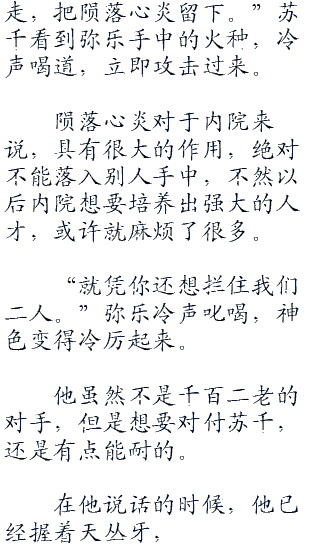 走，把陨落心炎留下。”苏
千看到弥乐手中的火种，冷
声喝道，立即攻击过来。
陨落心炎对于内院来
说，具有很大的作用，绝对
不能落入别人手中，不然以
后内院想要培养出强大的人
才，或许就麻烦了很多。
“就凭你还想拦住我们
二人。”弥乐冷声叱喝，神
色变得冷厉起来。
他虽然不是千百二老的
对手，但是想要对付苏千，
还是有点能耐的。
在他说话的时候，他已
经握着天丛牙，